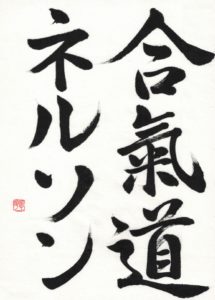 合氣道
ネルソン